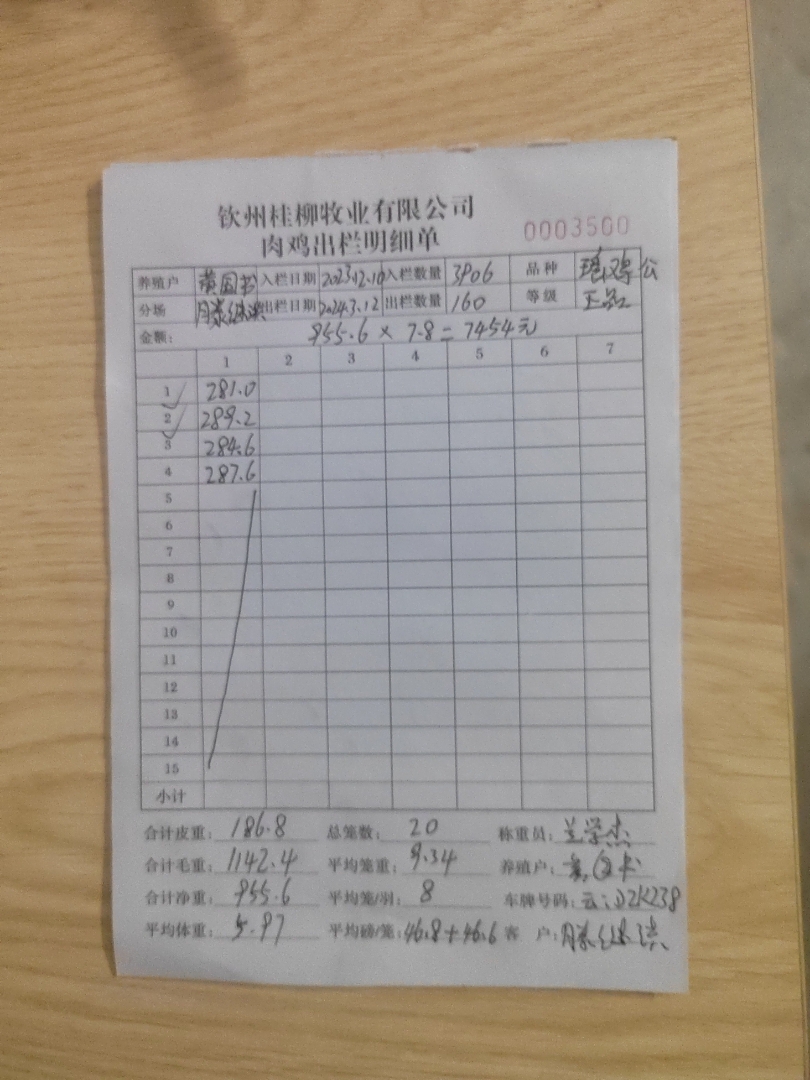 钦州桂柳牧业有限公司
肉鸡出栏明细单
0003500
养殖户 黄国书 入栏日期 2023.12.10 入栏数量 3906 品种 瑶鸡公
分场 滕继洪 出栏日期 2024.3.12 出栏数量 160 等级 正品
金额： 955.6 × 7.8 = 7454元
1 2 3 4 5 6 7
1 281.0
2 289.2
3 284.6
4 287.6
5
6
7
8
9
10
11
12
13
14
15
小计
合计皮重： 186.8 总笼数： 20 称重员： 兰学杰
合计毛重： 1142.4 平均笼重： 9.34 养殖户：
合计净重： 955.6 平均笼/羽： 8 车牌号码： 云:D2K238
平均体重： 5.97 平均磅/笼： 46.8+46.6 客 户： 滕继洪